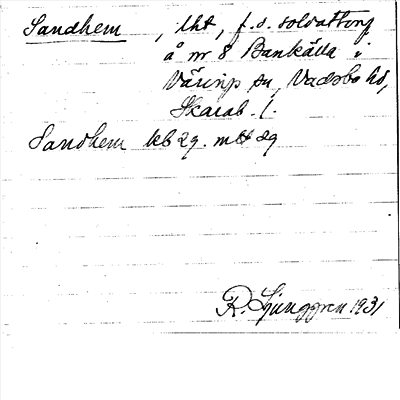 Sandhem, lht, f. d. soldattorp
å nr 8 Bankälla i
Värings sn, Vadsbo hd,
Skarab. l.
Sandhem kb 29. m
R. Ljunggren 1931